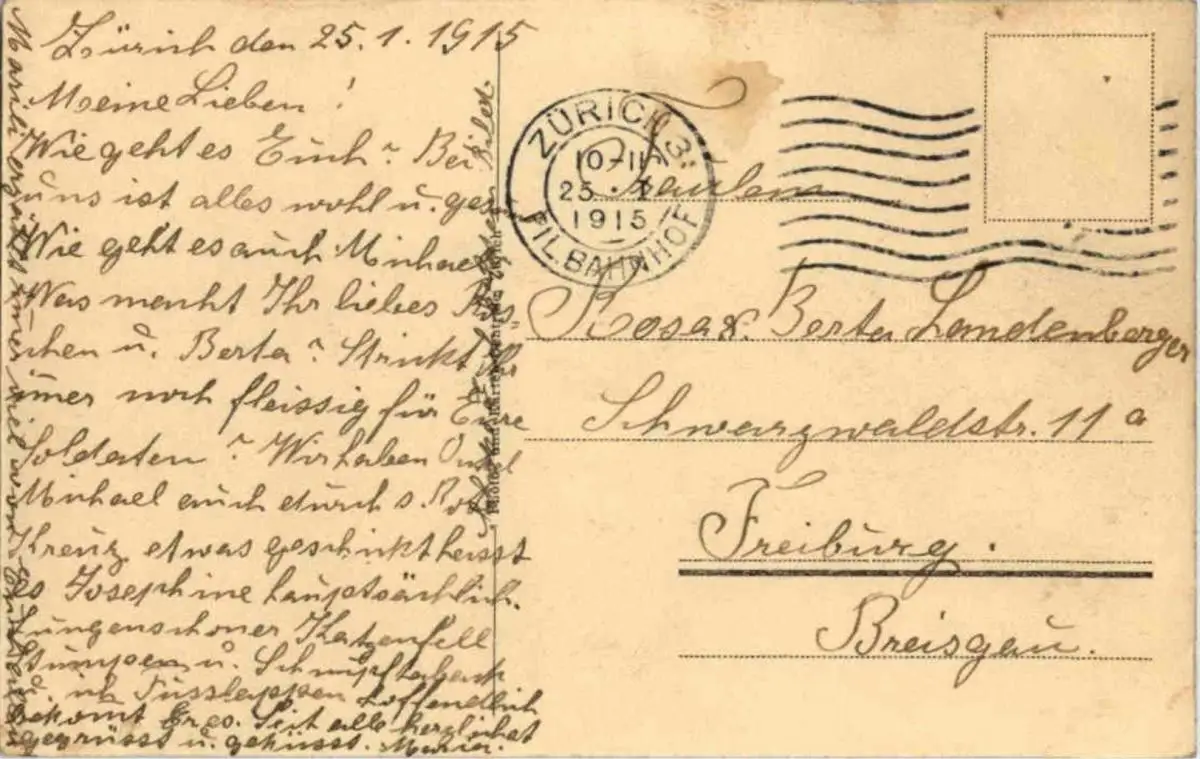 Zürich den 25.1.1915
Meine Lieben!
Wie geht es Euch? Bei
uns ist alles wohl u. ges
Wie geht es auch Michael
Was macht Ihr liebes Rös-
chen u. Berta? Strickt Ihr
imer noch fleissig für Eure
Soldaten? Wir haben Onkel
Michael auch durch s. Rote
Kreuz etwas geschickt heisst
es Josephine hauptsächlich.
Lungenschoner Katzenfell
Stumpen u. Schnupftabak
u. ich Fusslappen hoffendlich
bekomt Er es. Seit alle herzlichst
gegrüsst u. geküsst. Maria.
Marili erzählt imer viel von
ZÜRICH 3
10-11
25.I
1915
FIL.BAHNHOF
Fräulein
Rosa & Berta Landenberger
Schwarzwaldstr. 11a
Freiburg.
Breisgau.